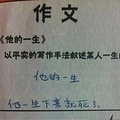 作文
《他的一生》
以平实的写作手法叙述某人一生的
他的一生
他一生下来就死了。